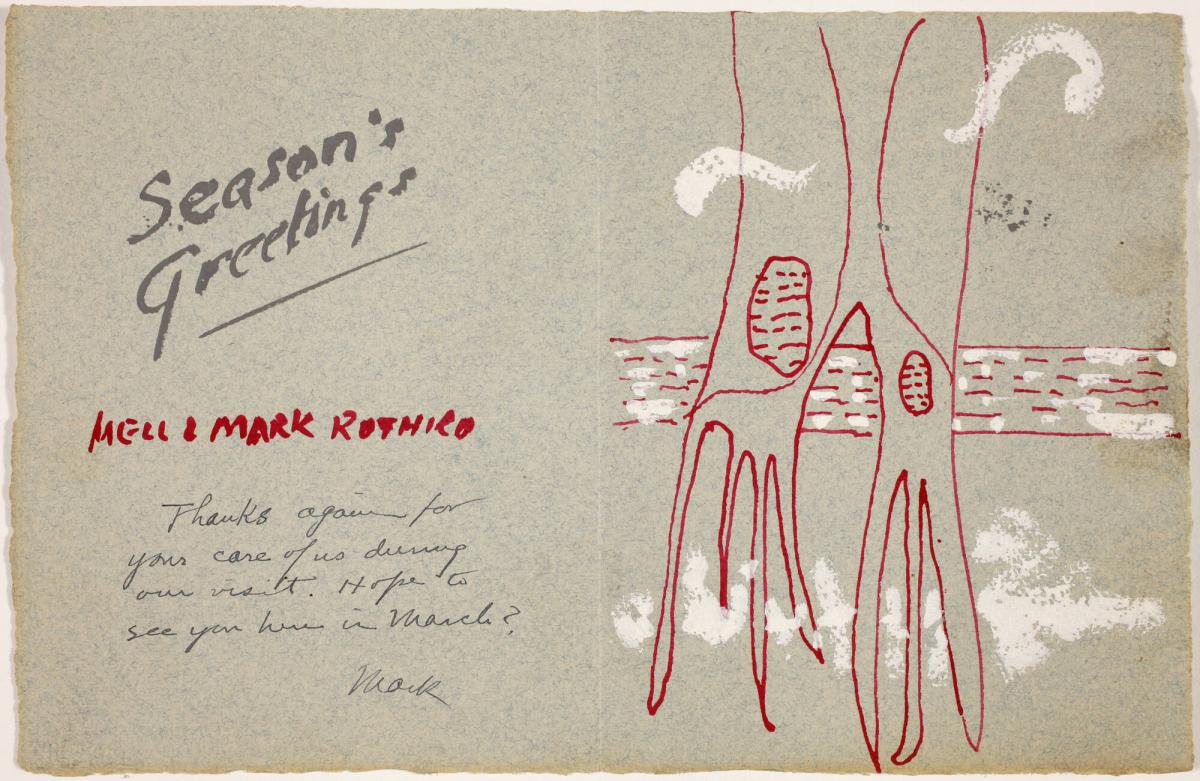 Season's
Greetings
MELL & MARK ROTHKO
Thanks again for
your care of us during
our visit. Hope to
see you here in March?
Mark